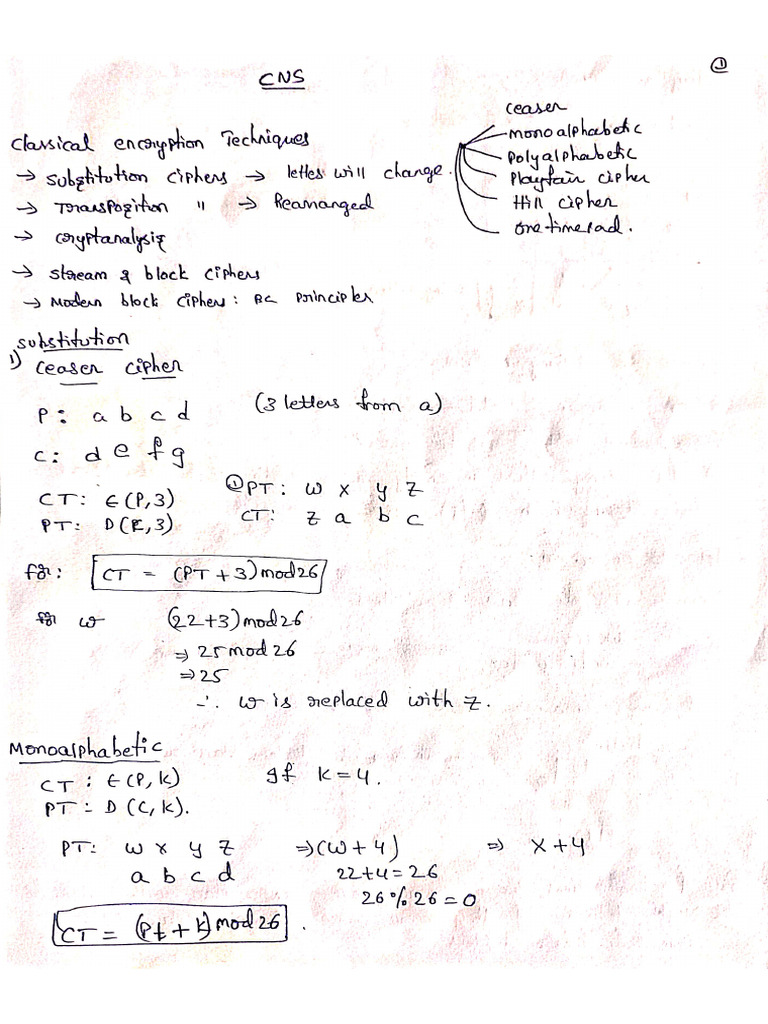 CNS
①
Classical encryption Techniques
→ Substitution ciphers → letter will change.
→ Transposition " → Rearranged
→ cryptanalysis
→ stream & block ciphers
→ Modern block ciphers: BC principles
ceaser
monoalphabetic
polyalphabetic
Playfair cipher
Hill cipher
one time pad.
substitution
1) ceaser cipher
P: a b c d (3 letters from a)
C: d e f g
CT: E(P,3)
PT: D(E,3)
① PT: w x y z
CT: z a b c
for: CT = (PT + 3) mod 26
for w (22+3) mod 26
⇒ 25 mod 26
⇒ 25
∴ w is replaced with z.
Monoalphabetic
CT : E(P, K) If K = 4.
PT = D (C, K).
PT: w x y z ⇒ (w + 4) ⇒ x + 4
a b c d 22+4 = 26
26 % 26 = 0
CT = (Pt + k) mod 26.